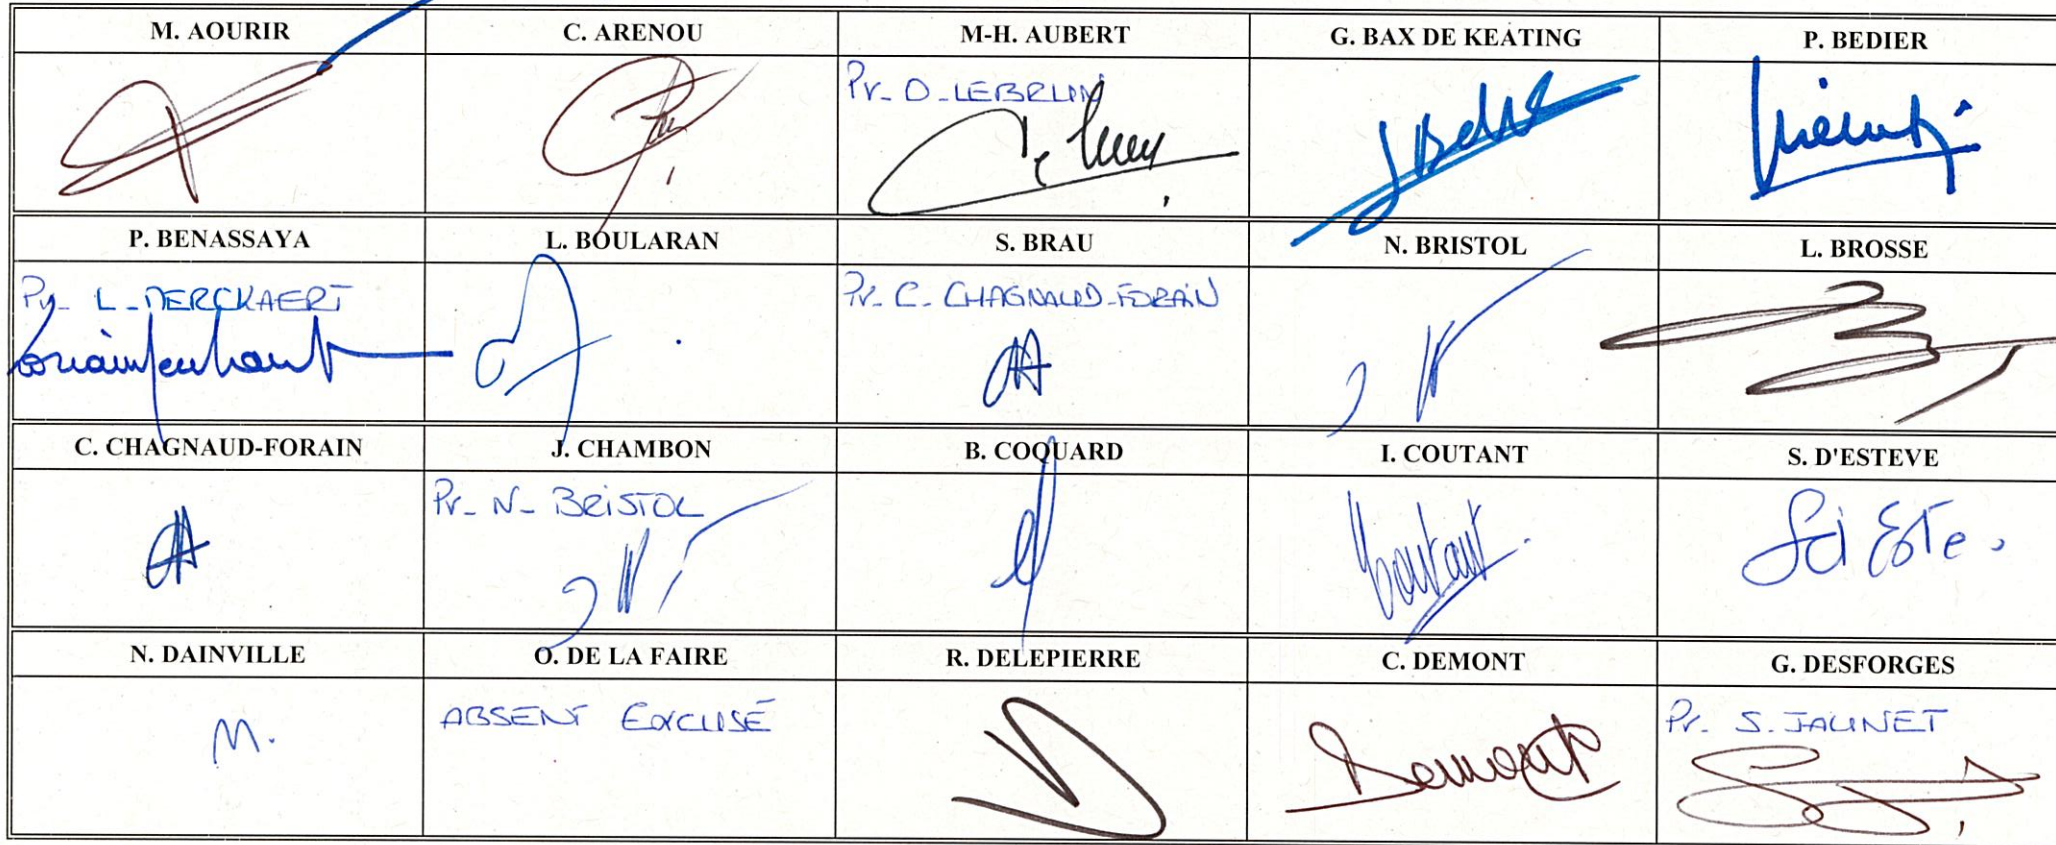 M. AOURIR
C. ARENOU
M-H. AUBERT
G. BAX DE KEATING
P. BEDIER
Pr_ D_LEBRUN
P. BENASSAYA
L. BOULARAN
S. BRAU
N. BRISTOL
L. BROSSE
Pr_ L_MERCKAERT
Pr_ C_ CHAGNAUD_FORAIN
C. CHAGNAUD-FORAIN
J. CHAMBON
B. COQUARD
I. COUTANT
S. D'ESTEVE
Pr_ N_ BRISTOL
Coutant
N. DAINVILLE
O. DE LA FAIRE
R. DELEPIERRE
C. DEMONT
G. DESFORGES
M.
ABSENT EXCUSÉ
Demont
Pr. S. JAUNET